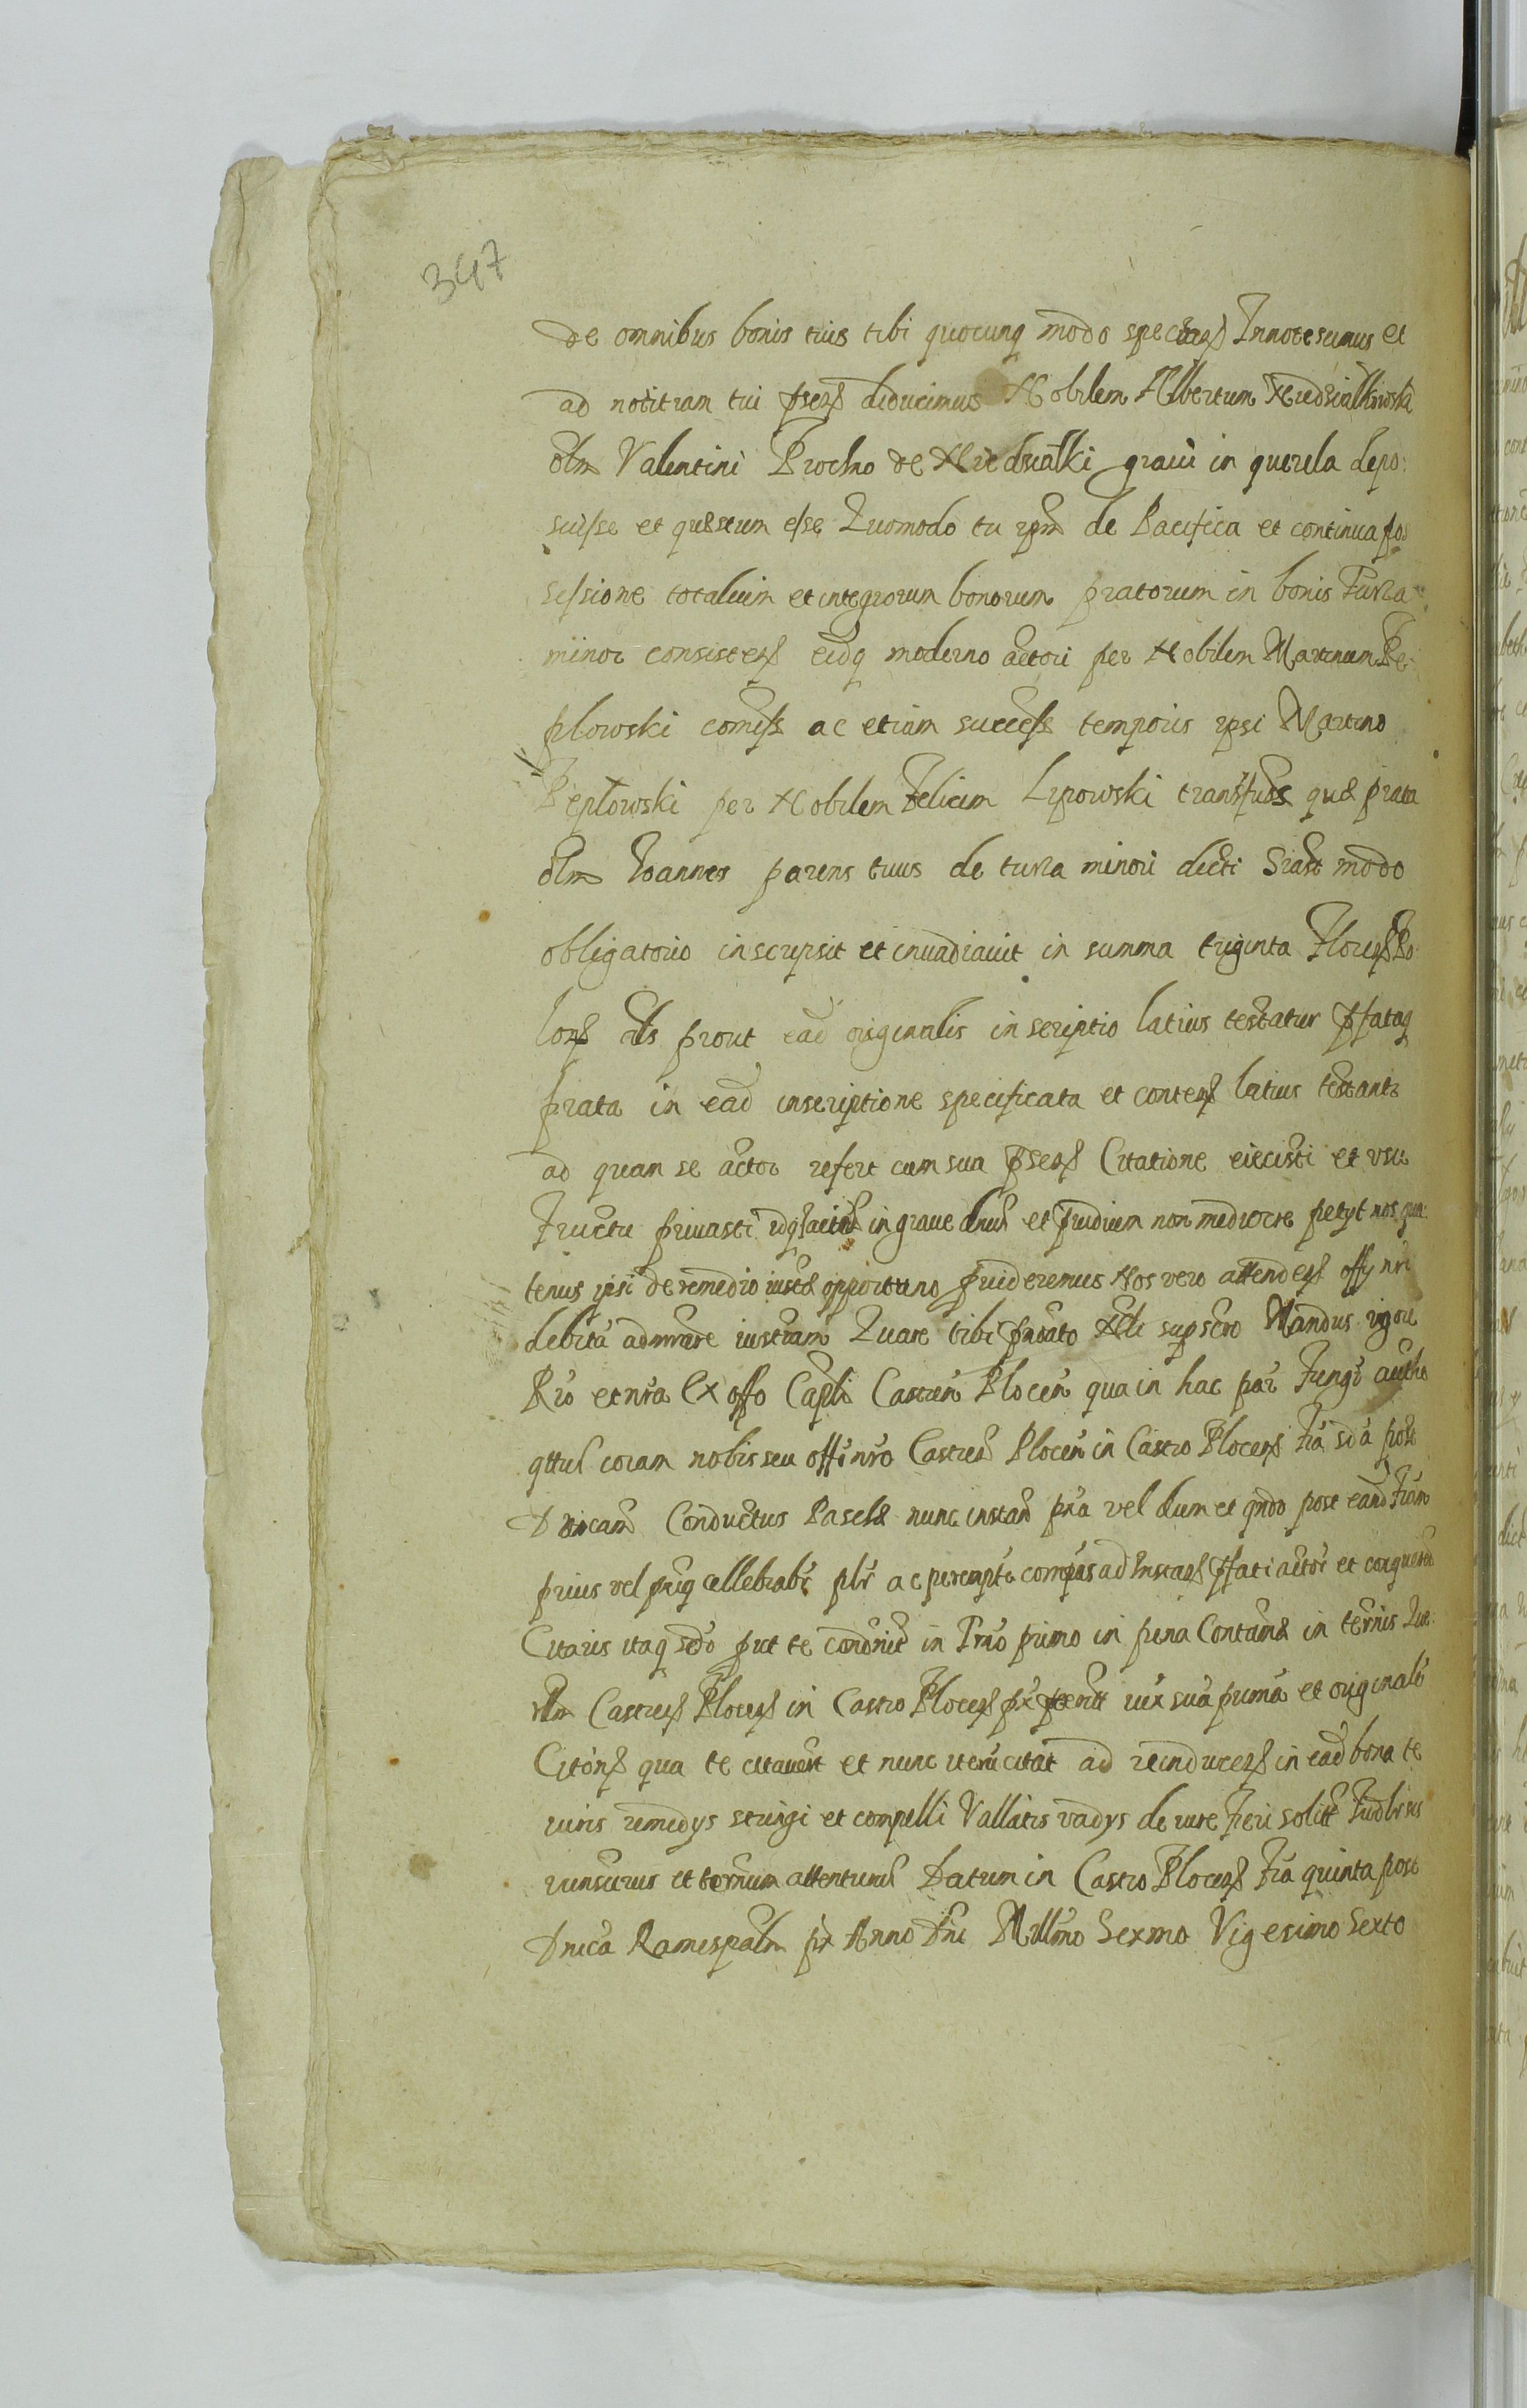 347
de omnibus bonis tuis tibi quocunq modo spectan Innotescimus et
ad notitiam tui psen deducimus Nobilem Albertum Niedzialkowski
olim Valentini Prochno de Niedzialki graui in querela depo
suisse et questum esse Quomodo tu ipm de Pacifica et continua pos
sessione totalium et integrorum bonorum pratorum in bonis Turza
minor consisten eidq moderno actori per Nobilem Martinum Pe
plowski comiss ac etiam success temporis ipsi Martino
Peplowski per Nobilem Felicem Lipowski transfus quæ prata
olim Ioannes parens tuus de turza minori dicti modo
obligatorio inscripsit et inuadiauit in summa triginta Floren Po
lon als prout ead originalis inscriptio latius testatur pfataq
prata in ead inscriptione specificata et conten latius testantr
ad quam se actor refert cum sua psen Citatione eiecisti et usu
fructu priuasti in graue et non mediocre petyt nos qua
tenus ipsi de remedio iustæ opportuno puideremus Nos vero attenden offy nri
debita admrare iustiam Quare tibi supscto Mandus vigore
Rio et nra Ex offo Caplli Castren Plocen qua in hac par Fungr autho
qttus coram nobis seu offi nro Castren Plocen in Castro Plocen Fria scda post
Dnicam Conductus Paschæ nunc instan pxa vel dum et qndo post eand Friam
prius vel cellebrabr plr ac perempte compas ad Instan pfati actor et
Citaris itaq put te in Trno primo in pena Contumæ in ternis Que
rlm Castren Plocen in Castro Plocen iux sua prima et originale
Citon qua te citauert et nunc iteru citat ad reinducen in ead bona te
iuris remedys stringi et compelli Vallatis vadys de iure Fieri solitt Iudlr
rinsurus et ternum attenturus Datum in Castro Plocen Fria quinta post
Dnica Ramispalm px Anno Dni Millmo Sexmo Vigesimo Sexto